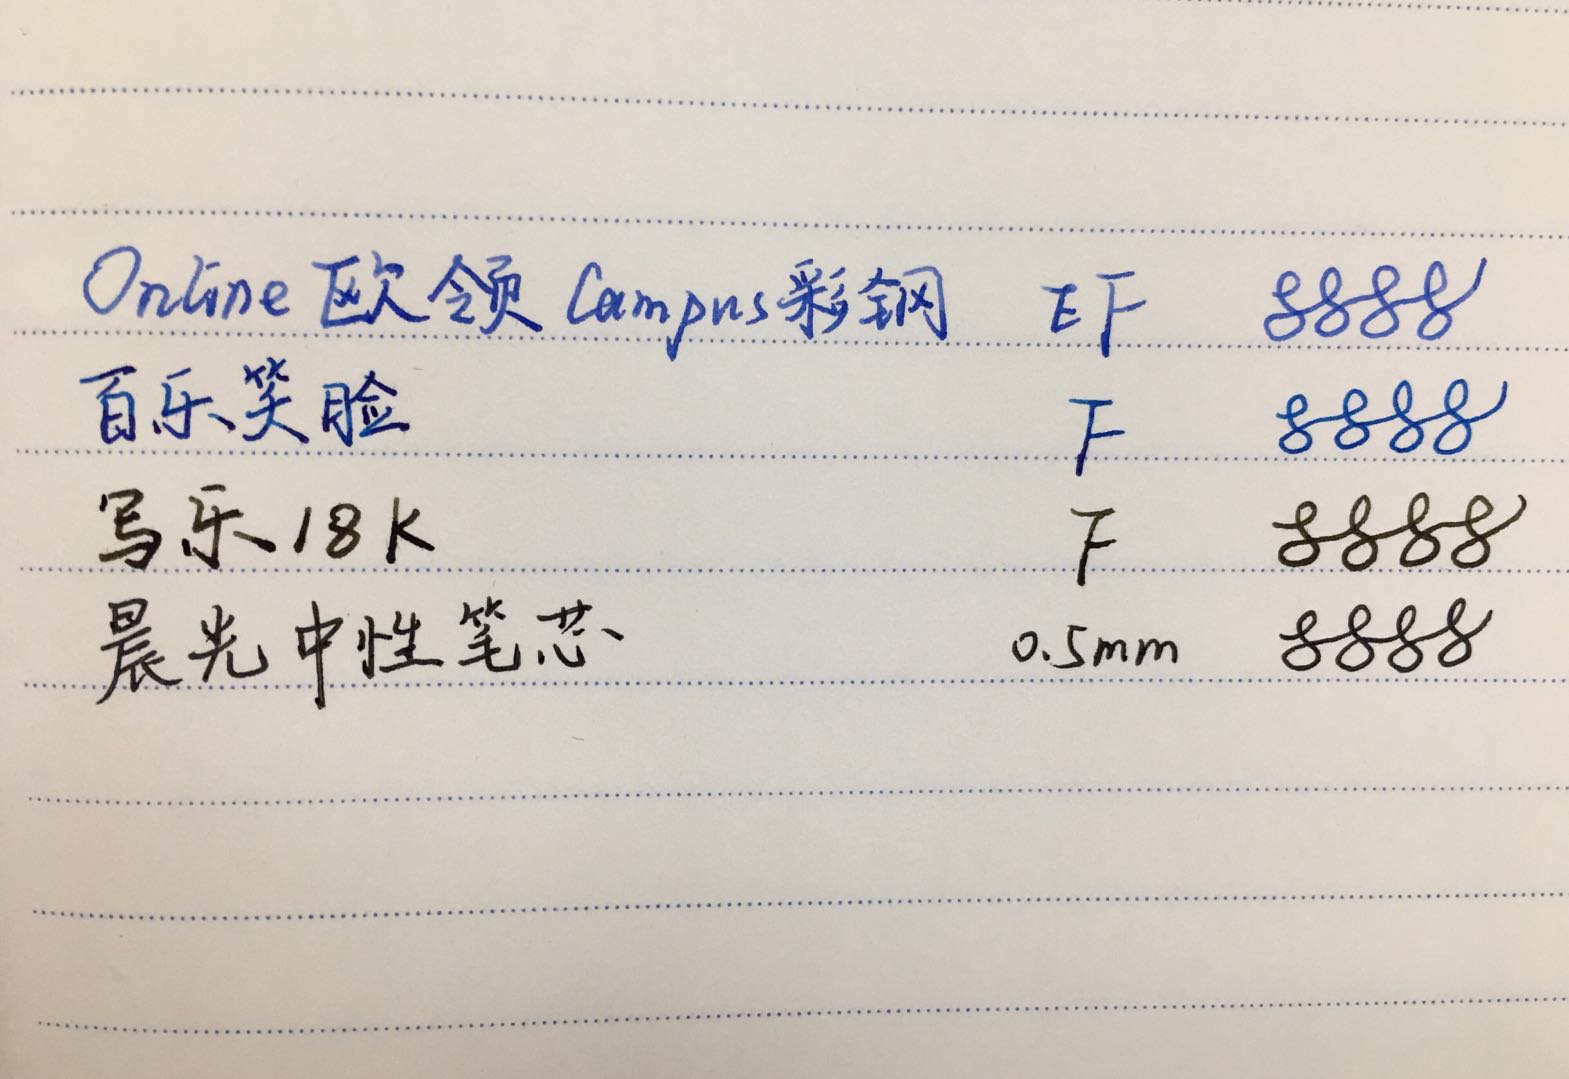 Online 欧领 Campus彩钢 EF 8888
百乐笑脸 F 8888
写乐18K F 8888
晨光中性笔芯 0.5mm 8888